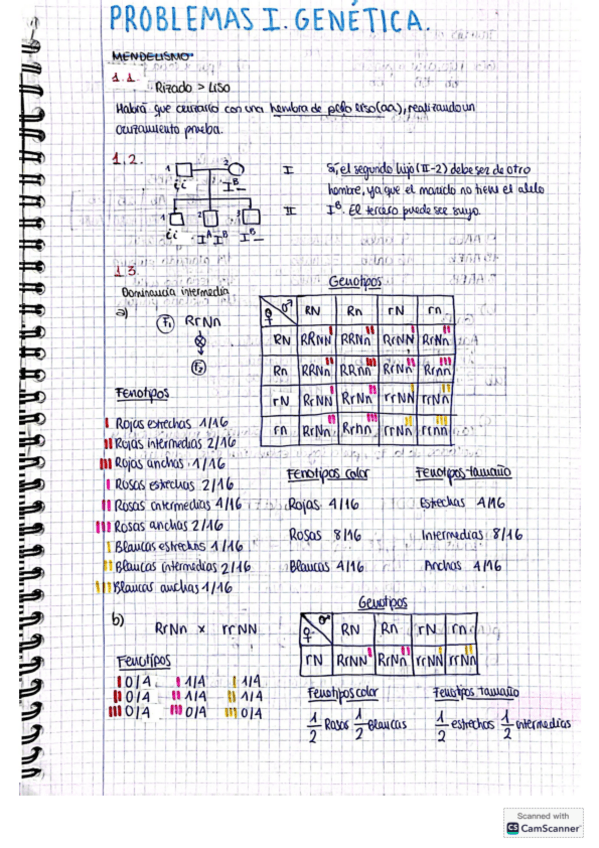 PROBLEMAS I. GENÉTICA.
MENDELISMO
1.1.
Rizado > Liso
Habrá que cruzarlo con una hembra de pelo liso (aa), realizando un
cruzamiento prueba.
1.2.
1 2 I
ii I^B_
1 2 3 II
ii I^A I^B I^B_
Sí, el segundo hijo (II-2) debe ser de otro
hombre, ya que el marido no tiene el alelo
I^B. El tercero puede ser suyo.
1.3.
Dominancia intermedia
a)
F1 RrNn
⊗
F2
Genotipos
♀ ♂ RN Rn rN rn
RN RRNN RRNn RrNN RrNn
Rn RRNn RRnn RrNn Rrnn
rN RrNN RrNn rrNN rrNn
rn RrNn Rrnn rrNn rrnn
Fenotipos
I Rojas estrechas 1/16
II Rojas intermedias 2/16
III Rojas anchas 1/16
I Rosas estrechas 2/16
II Rosas intermedias 4/16
III Rosas anchas 2/16
I Blancas estrechas 1/16
II Blancas intermedias 2/16
III Blancas anchas 1/16
Fenotipos color
Rojas 4/16
Rosas 8/16
Blancas 4/16
Fenotipos tamaño
Estrechas 4/16
Intermedias 8/16
Anchas 4/16
b)
RrNn x rrNN
Genotipos
♀ ♂ RN Rn rN rn
rN RrNN RrNn rrNN rrNn
Fenotipos
I 0/4 I 1/4 I 1/4
II 0/4 II 1/4 II 1/4
III 0/4 III 0/4 III 0/4
Fenotipos color
1/2 Rosas 1/2 Blancas
Fenotipos tamaño
1/2 estrechas 1/2 intermedias
Scanned with
CS CamScanner